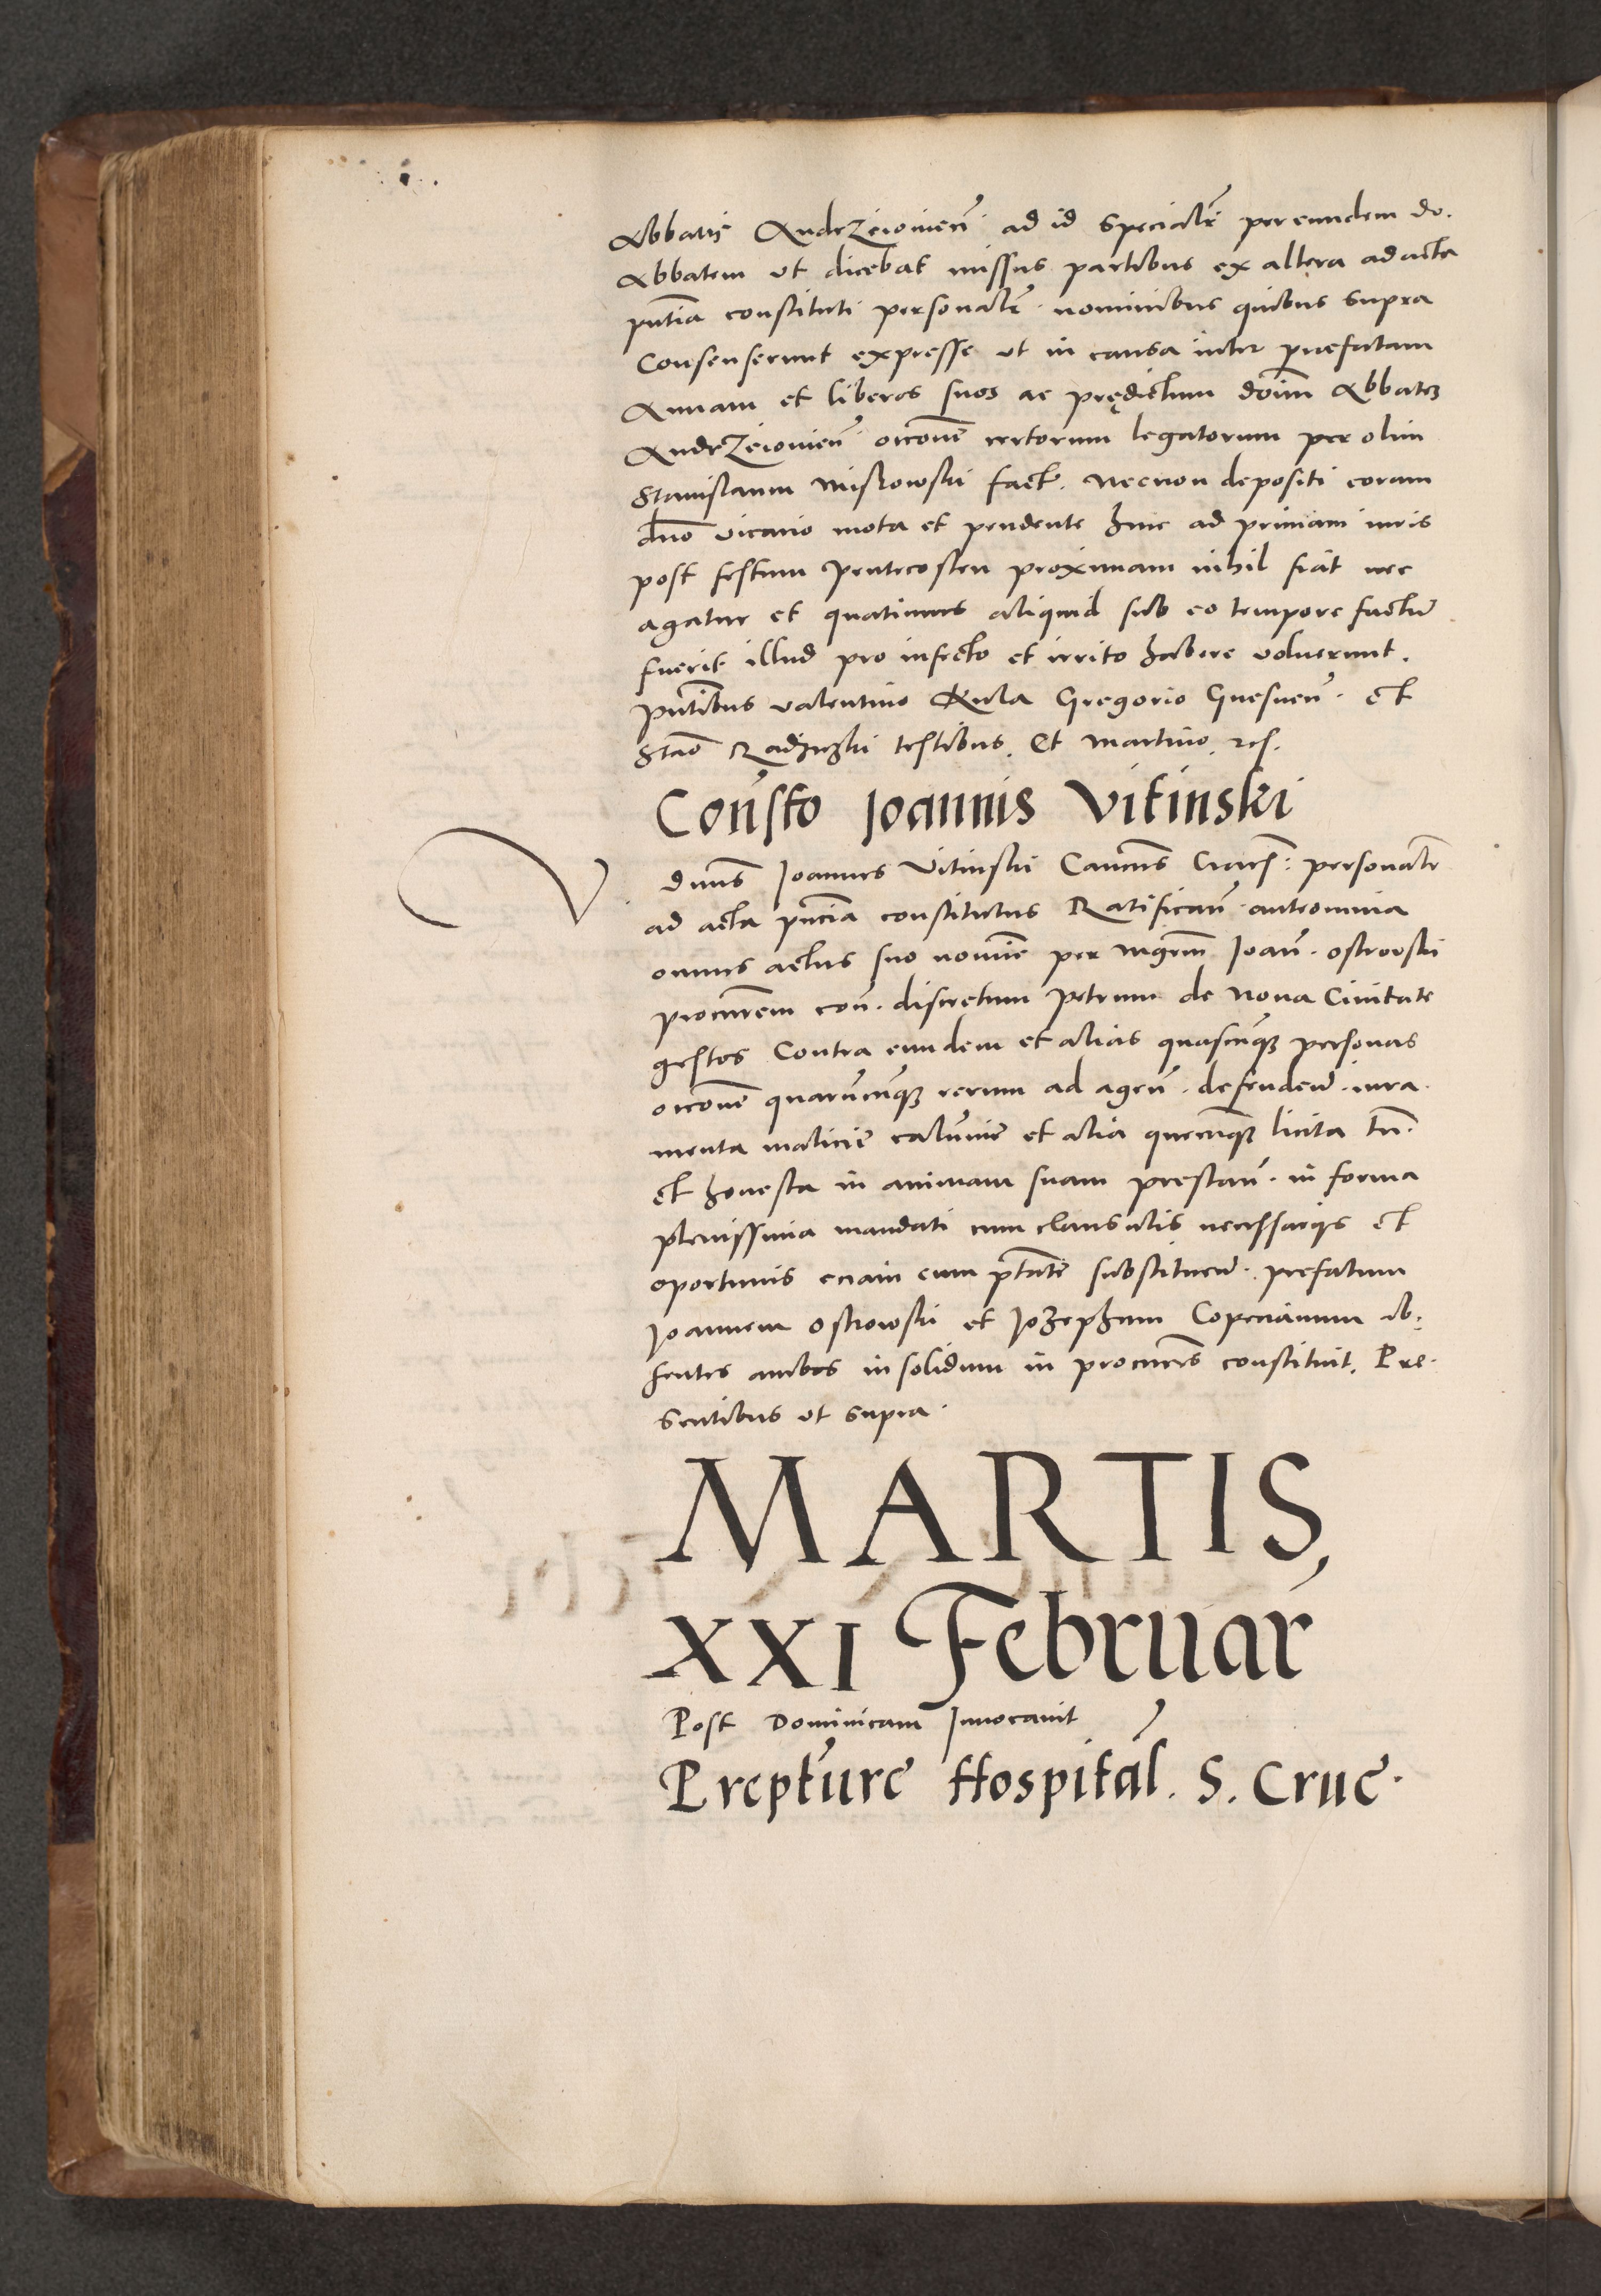 Abbatis Andrzeiouień ad id specialr̃ per eundem do.
Abbatem ut dicebat missus partibus ex altera ad acta
pñtia constituti personalr̃. nominibus quibus supra
Consenserunt expresse ut in causa inter prefatam
Annam et liberos suos ac prędictum dōim Abbatẽ
Andrzeiouień. occone certorum legatorum per olim
Stanislaum Miskowski fact̃. Necnon depositi coram
dño vicario mota et pendente hinc ad primam iuris
post festum Pentecosten proximam nihil fiat nec
agatur et quatinus aliquid sub eo tempore factũ
fuerit illud pro infecto et irrito habere voluerunt.
pñtibus valentino Kula Gregorio Gnesneñ. Et
Stão testibus. Et Martino.
Coñsto Joannis Vitinski
V
dnus Joannes Vitinski Canoñs Crac̃: personalr̃
ad acta pñcia constitutus Ratificań. anteomnia
omnes actus suo nomine per Mgrm̃ Joañ. ostrowski
procurem coñ. discretum Petrum de Noua Ciuitate
gestos Contra eundem et alias quascunq; personas
occone quarũcunq; rerum ad ageñ. defendeñ. iura.
menta malicie calũnie et alia quecunq; licita tñ.
et honesta in animam suam prestañ. in forma
plenissima mandati cum clausulis necessarijs et
oportunis eciam cum ptãte substitueñ. prefatum
Joannem Ostrowski et Jozephum ab.
sentes ambos in solidum in procures constituit. Pre.
sentibus ut supra.
MARTIS
XXI Februar̃
Post Dominicam Inuocauit
Preptũre Hospitãl. S. Cruc.